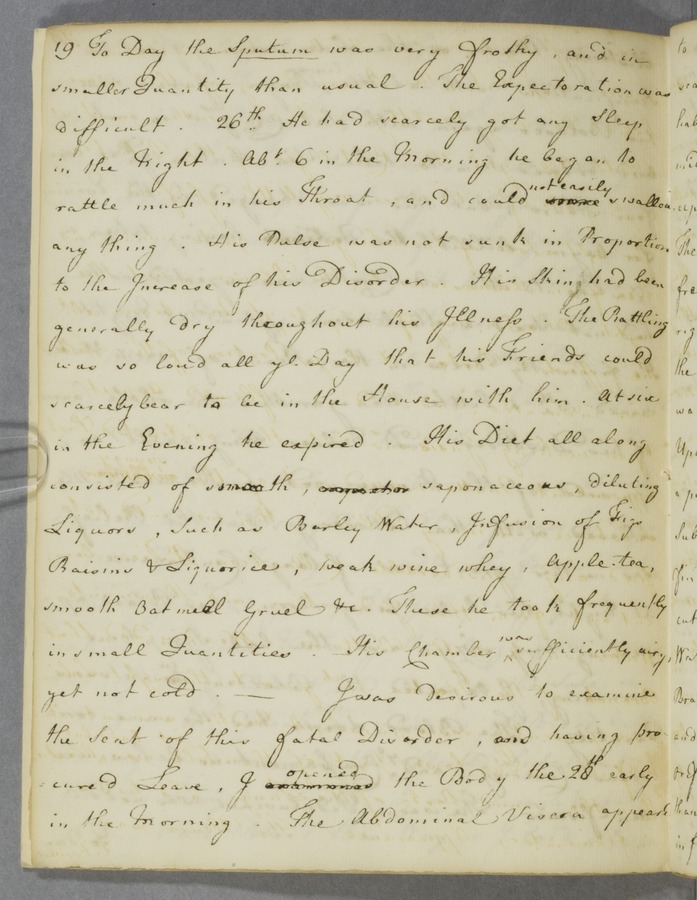 19 To Day the Sputum was very frothy, and in
smaller Quantity than usual. The Expectoration was
difficult. 26th. He had scarcely got any Sleep
in the Night. Abt. 6 in the Morning he began to
rattle much in his Throat, and could not easily swallow
any thing. His Pulse was not sunk in Proportion
to the Increase of his Disorder. His Skin had been
generally dry throughout his Illness. The Rattling
was so loud all yt. Day that his Friends could
scarcely bear to be in the House with him. At six
in the Evening he expired. His Diet all along
consisted of smooth, saponaceous, diluting
Liquors, Such as Barley Water, Infusion of Figs
Raisins & Liquorice, weak wine whey, Apple-tea,
smooth Oatmeal Gruel &c. These he took frequently
in small Quantities. His Chamber was sufficiently airy,
yet not cold. — I was desirous to examine
the Seat of this fatal Disorder, and having pro-
-cured Leave, I opened the Body the 28th early
in the Morning. The Abdominal Viscera appear'd